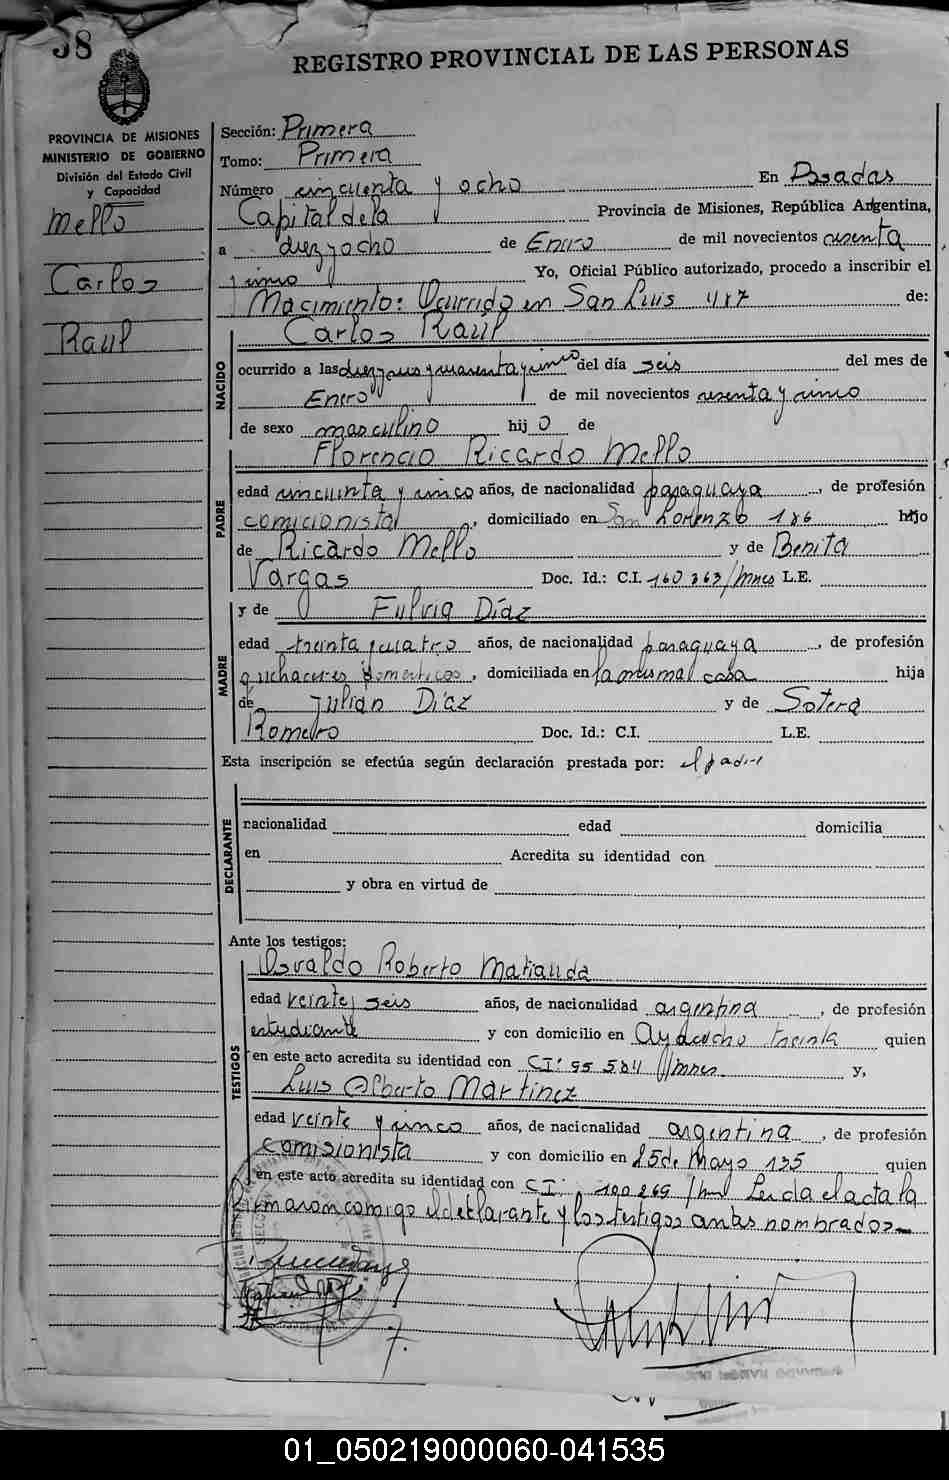 58
REGISTRO PROVINCIAL DE LAS PERSONAS
PROVINCIA DE MISIONES
MINISTERIO DE GOBIERNO
División del Estado Civil
y Capacidad
Mello
Carlos
Raul
Sección: Primera
Tomo: Primera
Número cincuenta y ocho En Posadas
Capital de la Provincia de Misiones, República Argentina,
a diez y ocho de Enero de mil novecientos
Yo, Oficial Público autorizado, procedo a inscribir el
Nacimiento: Ocurrido en San Luis 487 de:
NACIDO
Carlos Raul
ocurrido a las del día seis del mes de
Enero de mil novecientos
de sexo masculino hij o de
PADRE
Florencio Ricardo Mello
edad cincuenta y cinco años, de nacionalidad paraguaya, de profesión
comicionista, domiciliado en San Lorenzo 186 hijo
de Ricardo Mello y de Benita
Vargas Doc. Id.: C.I. 160 363/mnes L.E.
MADRE
y de Fulvia Díaz
edad treinta cuatro años, de nacionalidad paraguaya, de profesión
quehaceres domesticos, domiciliada en la misma casa hija
de Julian Díaz y de Sotera
Romero Doc. Id.: C.I. L.E.
Esta inscripción se efectúa según declaración prestada por: el padre
DECLARANTE
nacionalidad edad domicilia
en Acredita su identidad con
y obra en virtud de
Ante los testigos:
TESTIGOS
Osvaldo Roberto
edad veinte seis años, de nacionalidad argentina, de profesión
estudiante y con domicilio en Ayacucho treinta quien
en este acto acredita su identidad con CI: 95 584 /mnes y,
Luis Alberto Martinez
edad veinte y cinco años, de nacionalidad argentina, de profesión
comisionista y con domicilio en 25 de Mayo 135 quien
en este acto acredita su identidad con CI: 190 269 /mn Leida el acta la
firmaron comigo el declarante y los testigos antes nombrados
01_050219000060-041535